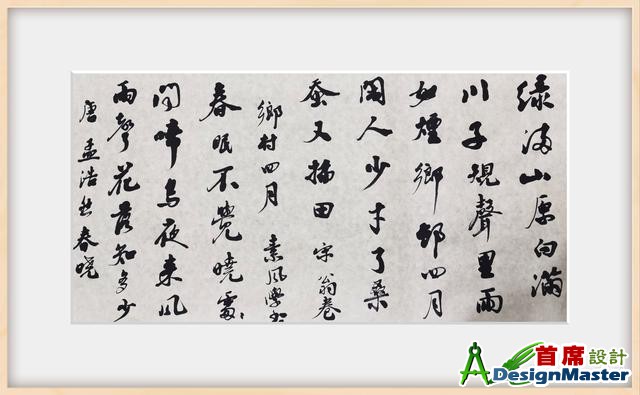 绿满山原白滿
川子規聲里雨
如煙鄉邨四月
閑人少才了桑
蚕又插田 宋 翁卷
鄉村四月 素风學书
春眠不覺曉處々
闻啼鸟夜来风
雨聲花落知多少
唐 孟浩然春晓
首席設計
DesignMaster